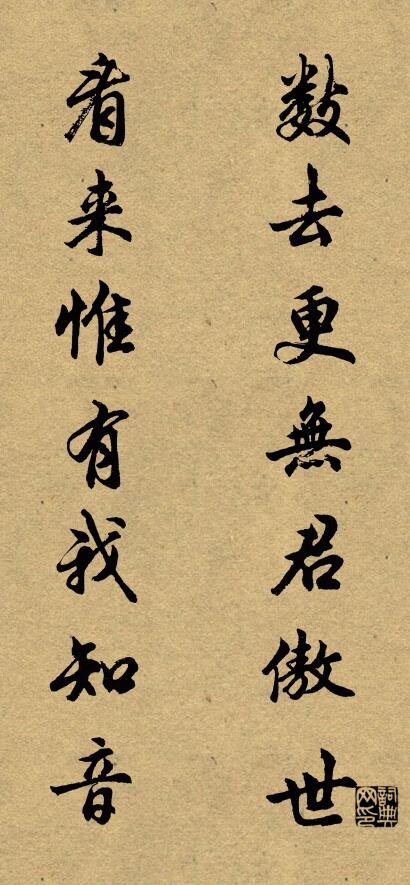 数去更無君傲世
看来惟有我知音
詞典网印